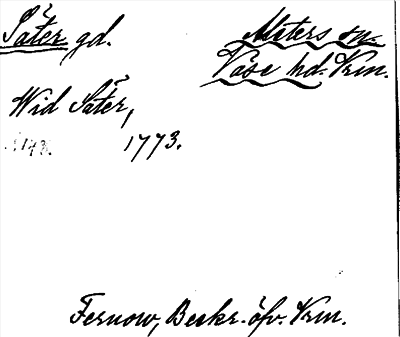 Säter gd.
Alsters sn.
Väse hd. Vrm.
Wid Säter,
1773.
Fernow, Beskr. öfv. Vrm.